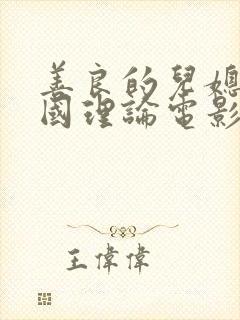 善良的兒媳
國理論電影
王偉偉